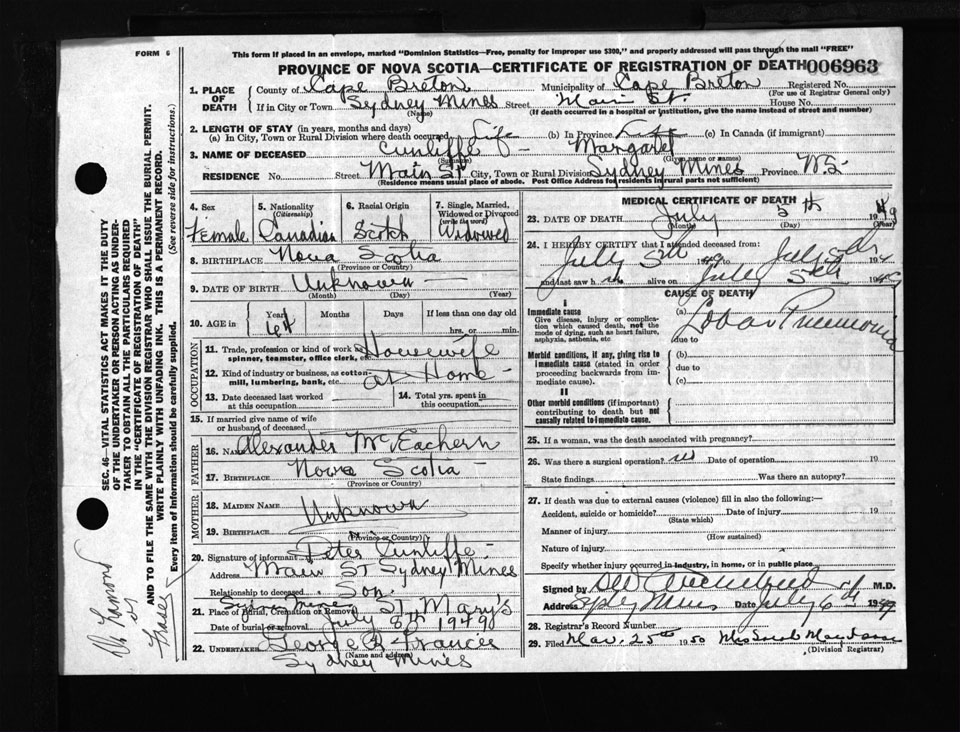 FORM 6
This form if placed in an envelope, marked "Dominion Statistics—Free, penalty for improper use $300," and properly addressed will pass through the mail "FREE"
PROVINCE OF NOVA SCOTIA—CERTIFICATE OF REGISTRATION OF DEATH 006963
1. PLACE OF DEATH County of Cape Breton Municipality of Cape Breton Registered No.
(For use of Registrar General only)
If in City or Town Sydney Mines Street Main St. House No.
(Name) (If death occurred in a hospital or institution, give the name instead of street and number)
2. LENGTH OF STAY (in years, months and days)
(a) In City, Town or Rural Division where death occurred Life (b) In Province Life (c) In Canada (if immigrant)
3. NAME OF DECEASED Cunliffe Margaret
(Surname) (Given name or names)
RESIDENCE No. Street Main St City, Town or Rural Division Sydney Mines Province N.S.
(Residence means usual place of abode. Post Office Address for residents in rural parts not sufficient)
4. Sex Female
5. Nationality (Citizenship) Canadian
6. Racial Origin Scotch
7. Single, Married, Widowed or Divorced (write the word) Widowed
8. BIRTHPLACE Nova Scotia
(Province or Country)
9. DATE OF BIRTH Unknown
(Month) (Day) (Year)
10. AGE in Years Months Days If less than one day old
hrs. or min.
OCCUPATION
11. Trade, profession or kind of work as spinner, teamster, office clerk, etc. Housewife
12. Kind of industry or business, as cotton-mill, lumbering, bank, etc. at Home
13. Date deceased last worked at this occupation
14. Total yrs. spent in this occupation
15. If married give name of wife or husband of deceased
FATHER
16. NAME Alexander McEachern
17. BIRTHPLACE Nova Scotia
(Province or Country)
MOTHER
18. MAIDEN NAME Unknown
19. BIRTHPLACE
(Province or Country)
20. Signature of informant Peter Cunliffe
Address Main St Sydney Mines
Relationship to deceased Son
21. Place of Burial, Cremation or Removal Syd. Mines St. Mary's
Date of burial or removal July 8th 1949
22. UNDERTAKER George A Francis
(Name and Address)
Sydney Mines
MEDICAL CERTIFICATE OF DEATH
23. DATE OF DEATH July 5th 1949
(Month) (Day) (Year)
24. I HEREBY CERTIFY that I attended deceased from:
July 5th July 5th 194
and last saw h alive on July 5th 194
CAUSE OF DEATH
I
Immediate cause
Give disease, injury or complication which caused death, not the mode of dying, such as heart failure, asphyxia, asthenia, etc.
(a) Lobar Pneumonia
due to
Morbid conditions, if any, giving rise to immediate cause (stated in order proceeding backwards from immediate cause).
(b)
due to
(c)
II
Other morbid conditions (if important) contributing to death but not causally related to immediate cause.
25. If a woman, was the death associated with pregnancy?
26. Was there a surgical operation? no Date of operation 19
State findings Was there an autopsy?
27. If death was due to external causes (violence) fill in also the following:—
Accident, suicide or homicide? Date of injury 19
(State which)
Manner of injury
(How sustained)
Nature of injury
Specify whether injury occurred in industry, in home, or in public place
Signed by M.D.
Address Sydney Mines Date July 6th 1949
28. Registrar's Record Number
29. Filed Mar. 25th 1950 Mrs Sarah May
(Division Registrar)
SEC. 46—VITAL STATISTICS ACT MAKES IT THE DUTY
OF THE UNDERTAKER OR PERSON ACTING AS UNDER-
TAKER TO OBTAIN ALL THE PARTICULARS REQUIRED
IN THE "CERTIFICATE OF REGISTRATION OF DEATH"
AND TO FILE THE SAME WITH THE DIVISION REGISTRAR WHO SHALL ISSUE THE BURIAL PERMIT.
WRITE PLAINLY WITH UNFADING INK. THIS IS A PERMANENT RECORD.
Every item of Information should be carefully supplied. (See reverse side for instructions.)